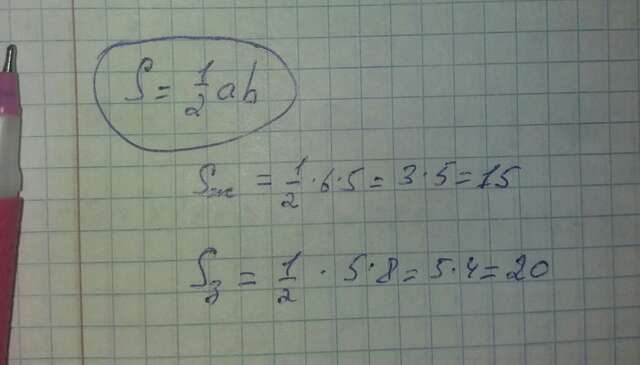 S = 1/2 ab
Sж = 1/2 · 6 · 5 = 3 · 5 = 15
Sз = 1/2 · 5 · 8 = 5 · 4 = 20